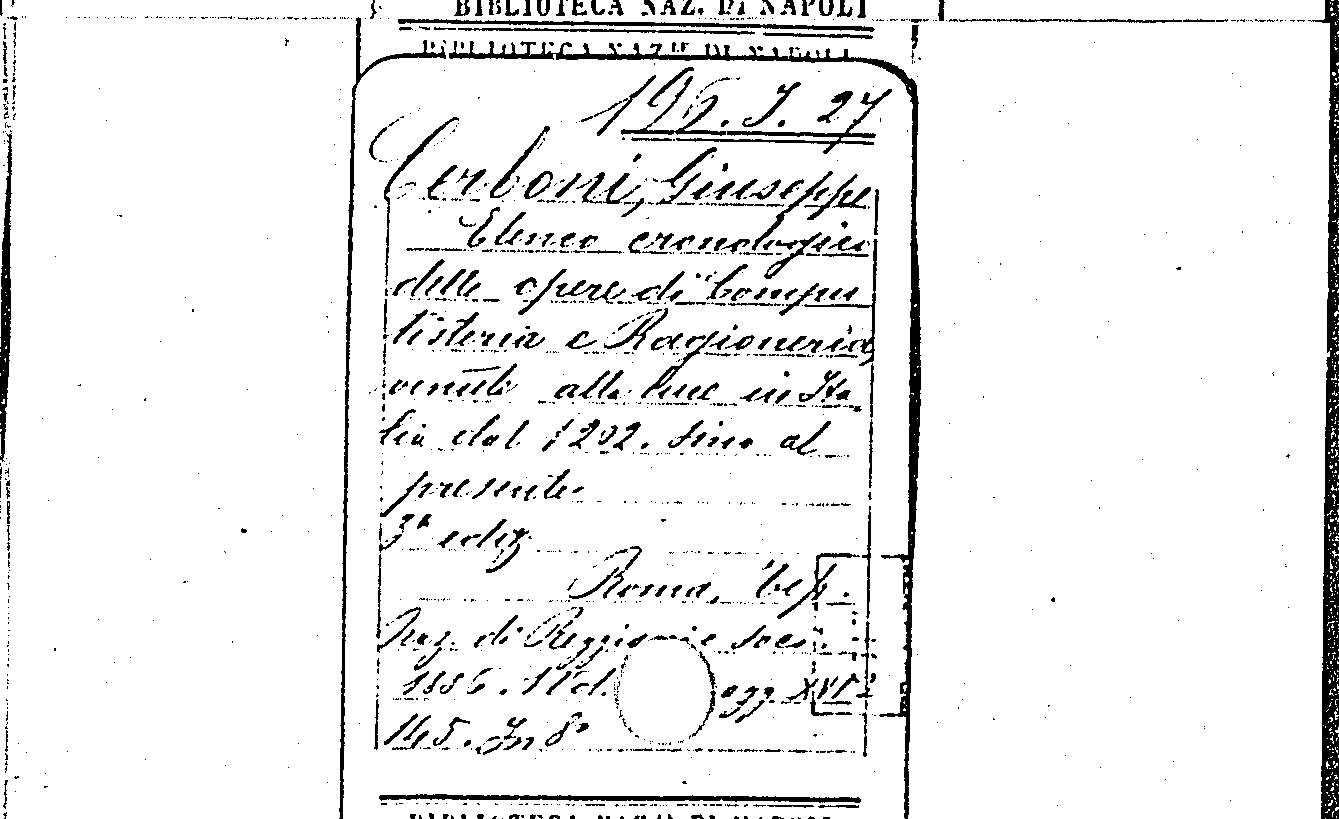 BIBLIOTECA NAZ. DI NAPOLI
BIBLIOTECA NAZ.LE DI NAPOLI
196. J. 27
Cerboni, Giuseppe
Elenco cronologico
delle opere di Compu
tisteria e Ragioneria,
venute alla luce in Ita
lia dal 1202. sino al
presente.
3ª ediz
Roma, Tip.
Naz. di Reggiani e soci.
1886. 1 Vol. pagg. XVI-
145. In 8°
BIBLIOTECA NAZ.LE DI NAPOLI